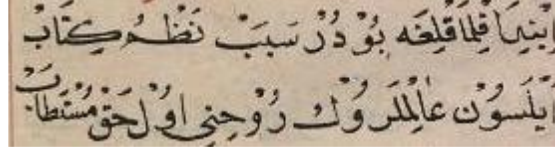 قِلْمَاقْلِغَه بُوْدُرْ سَبَبْ نَظْمِ كِتَابْ
اَيْلَسُوْنْ عَالِمْلَرُوْكْ رُوْحِنِى اُوْلْ حَقْ مُسْتَطَابْ